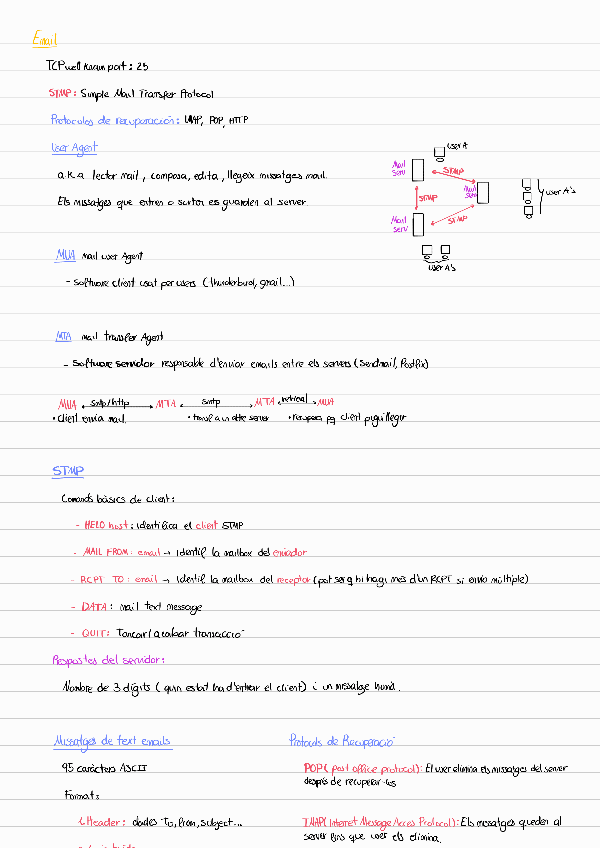 Email
TCP well known port : 25
STMP : Simple Mail Transfer Protocol
Protocolos de recuperación : IMAP, POP, HTTP
User Agent
a.k.a lector mail , composa, edita , llegeix missatges mail.
Els missatges que entren o sortes es guarden al server.
User A
Mail serv
STMP
Mail serv
STMP
STMP
Mail serv
user A's
user A's
MUA mail user Agent
- Software client usat per users (thunderbird, gmail...)
MTA mail transfer Agent
- Software servidor responsable d'enviar emails entre els servers (Sendmail, Postfix)
MUA smtp/http MTA smtp MTA retrieal MUA
• Client envia mail. • transf a un altre server • recupera pq client pugui llegir
STMP
Comands bàsics de client :
- HELO host : identifica el client STMP
- MAIL FROM : email → Identif la mailbox del enviador
- RCPT TO : email → Identif la mailbox del receptor (pot ser q hi hagi més d'un RCPT si envio múltiple)
- DATA : mail text message
- QUIT : Tancar/acabar transacció
Respostes del servidor :
Nombre de 3 dígits (quin estat ha d'entrar el client) i un missatge humà.
Missatges de text emails
Protocols de Recuperació
95 caràcters ASCII
POP (post office protocol) : El user elimina els missatges del server
després de recuperar-los
Format :
Header : dades To, from, subject...
IMAP (Internet Message Acces Protocol) : Els missatges queden al
server fins que user els elimina.